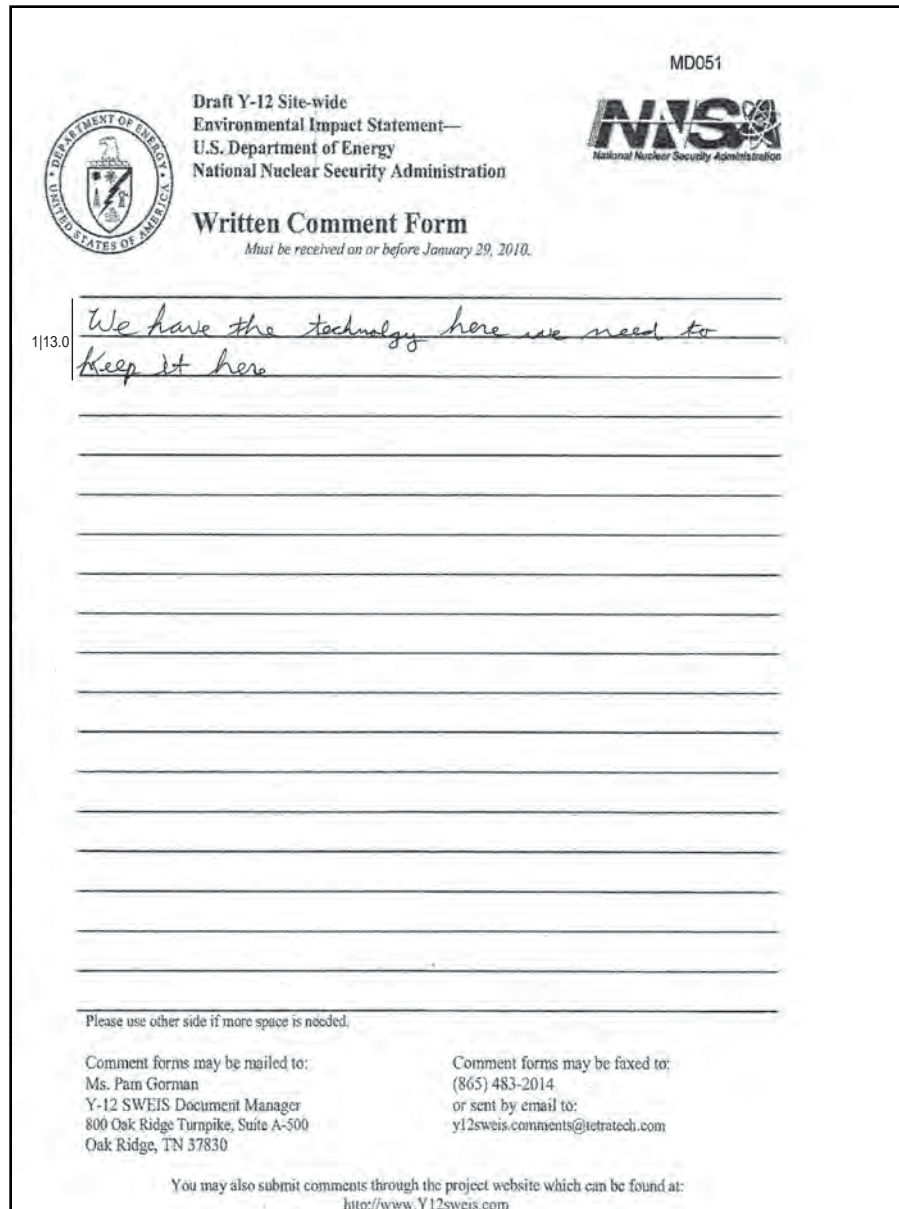 MD051
Draft Y-12 Site-wide
Environmental Impact Statement—
U.S. Department of Energy
National Nuclear Security Administration
DEPARTMENT OF ENERGY
UNITED STATES OF AMERICA
NNSA
National Nuclear Security Administration
Written Comment Form
Must be received on or before January 29, 2010.
We have the technolgy here we need to
1|13.0
Keep it here
Please use other side if more space is needed.
Comment forms may be mailed to:
Ms. Pam Gorman
Y-12 SWEIS Document Manager
800 Oak Ridge Turnpike, Suite A-500
Oak Ridge, TN 37830
Comment forms may be faxed to:
(865) 483-2014
or sent by email to:
y12sweis.comments@tetratech.com
You may also submit comments through the project website which can be found at:
http://www.Y12sweis.com